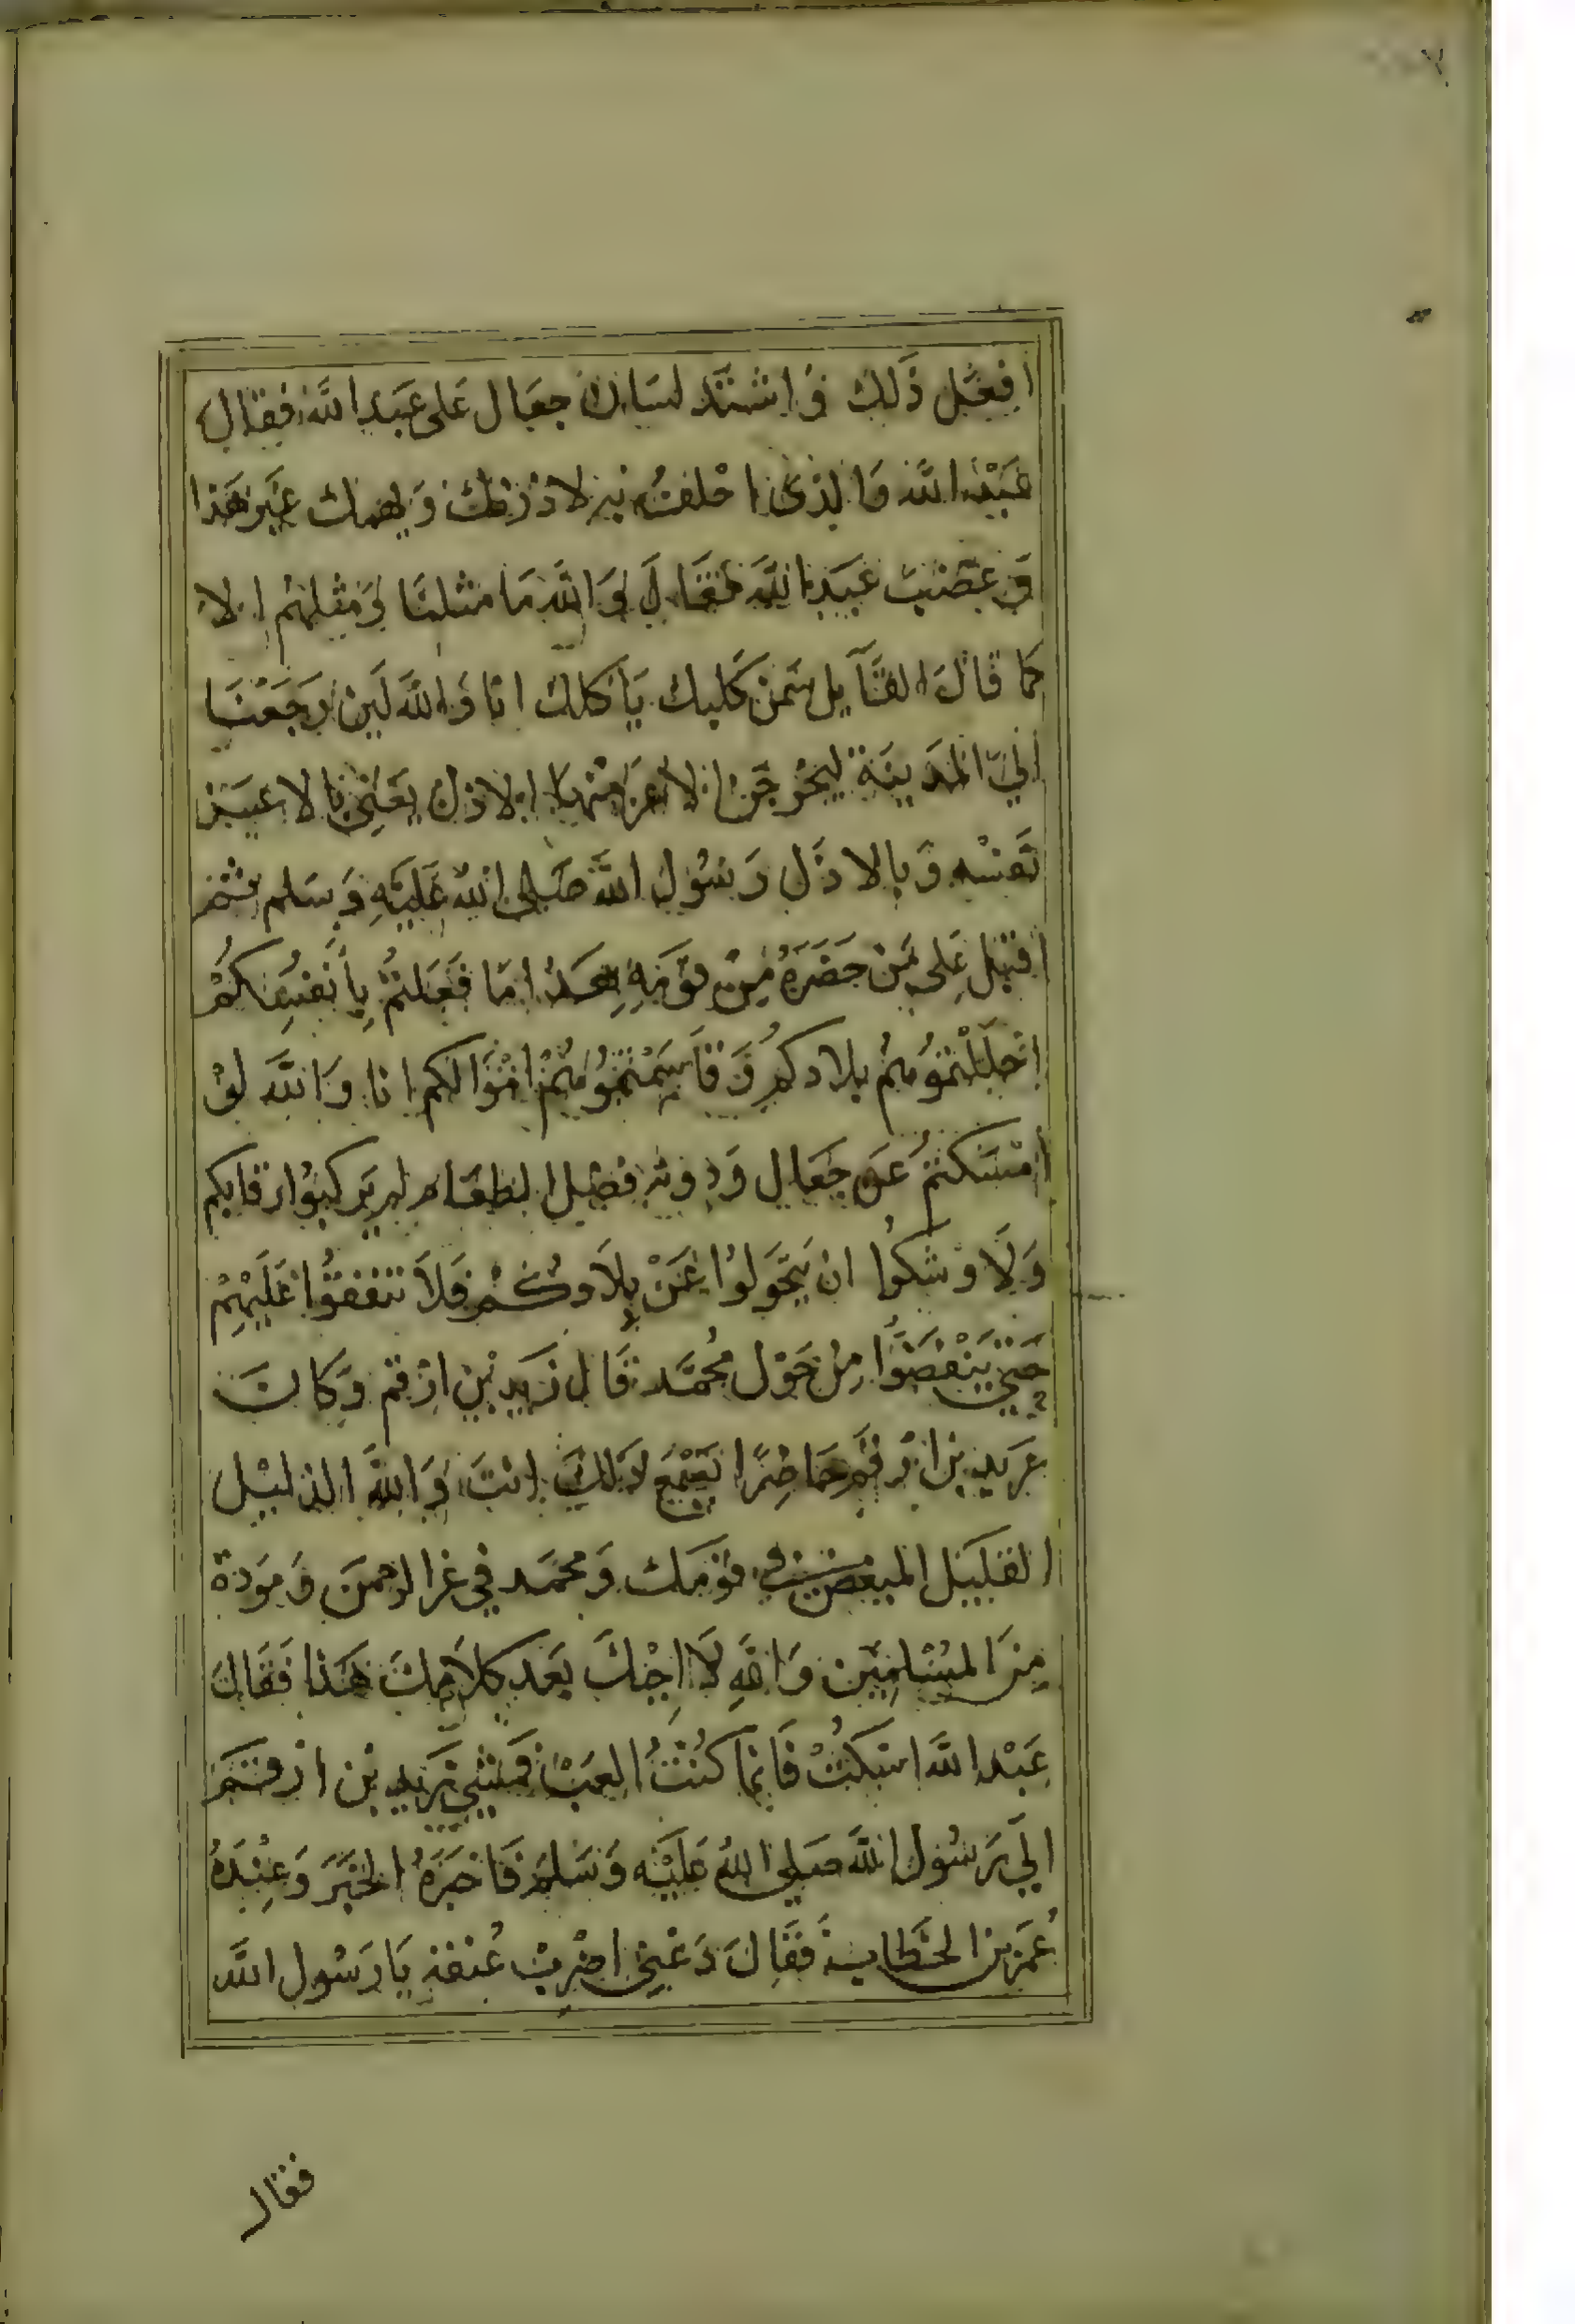 افعل ذلك واشتد لسان جعال على عبد الله فقال
عبد الله والذى احلف به لاذرنك ويهمك غير هذا
وغضب عبد الله فقال والله ما مثلنا ومثلهم الا
كما قال القآيل سمن كلبك ياكلك انا والله لين رجعنا
الي المدينة ليخرجن الاعز منها الاذل يعني بالاعز
نفسه وبالاذل رسول الله صلى الله عليه وسلم ثم
اقبل على من حضره من قومه هذا ما فعلتم بأنفسكم
احللتموهم بلادكم وقاسمتموهم اموالكم انا والله لو
امسكتم عن جعال وذويه فضل الطعام لم يركبوا رقابكم
ولا وشكوا ان يتحولوا عن بلادكم فلا تنفقوا عليهم
حتي ينفضوا من حول محمد قال زيد بن ارقم وكان
زيد بن ارقم حاضرا يسمع لذلك انت والله الذليل
القليل المبغض في قومك ومحمد في عز الرحمن ومودة
من المسلمين والله لا احبك بعد كلامك هذا فقال
عبد الله اسكت فانما كنت العب فمشي زيد بن ارقم
الي رسول الله صلى الله عليه وسلم فاخبره الخبر وعنده
عمر بن الخطاب فقال دعني اضرب عنقه يا رسول الله
فقال